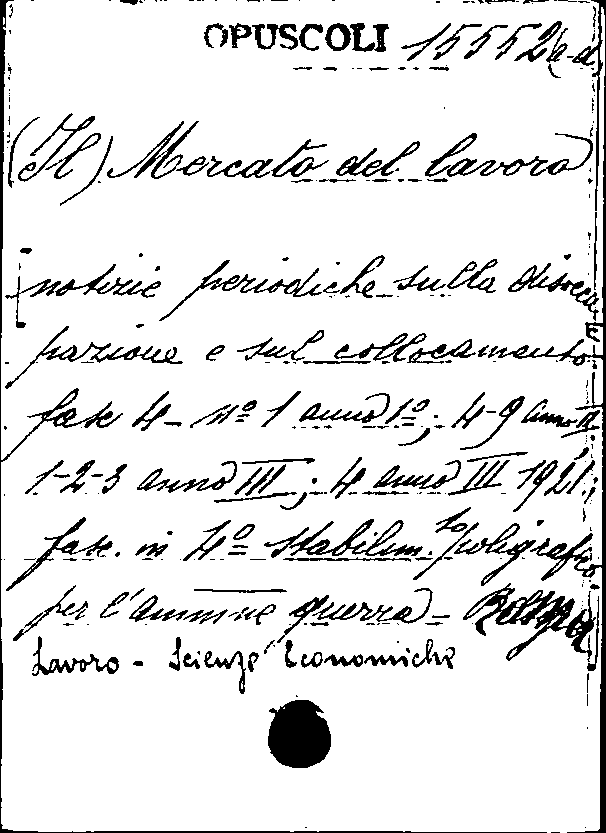 OPUSCOLI 15552 (a-d)
(Il) Mercato del lavoro
notizie periodiche sulla disoccu
pazione e sul collocamento
fasc 4 - nº 1 anno 1º; 4-9 anno II
1-2-3 anno III; 4 anno III 1921;
fasc. in 4º Stabilim.to poligrafico
per l'ammne guerra -
Lavoro - Scienze Economiche